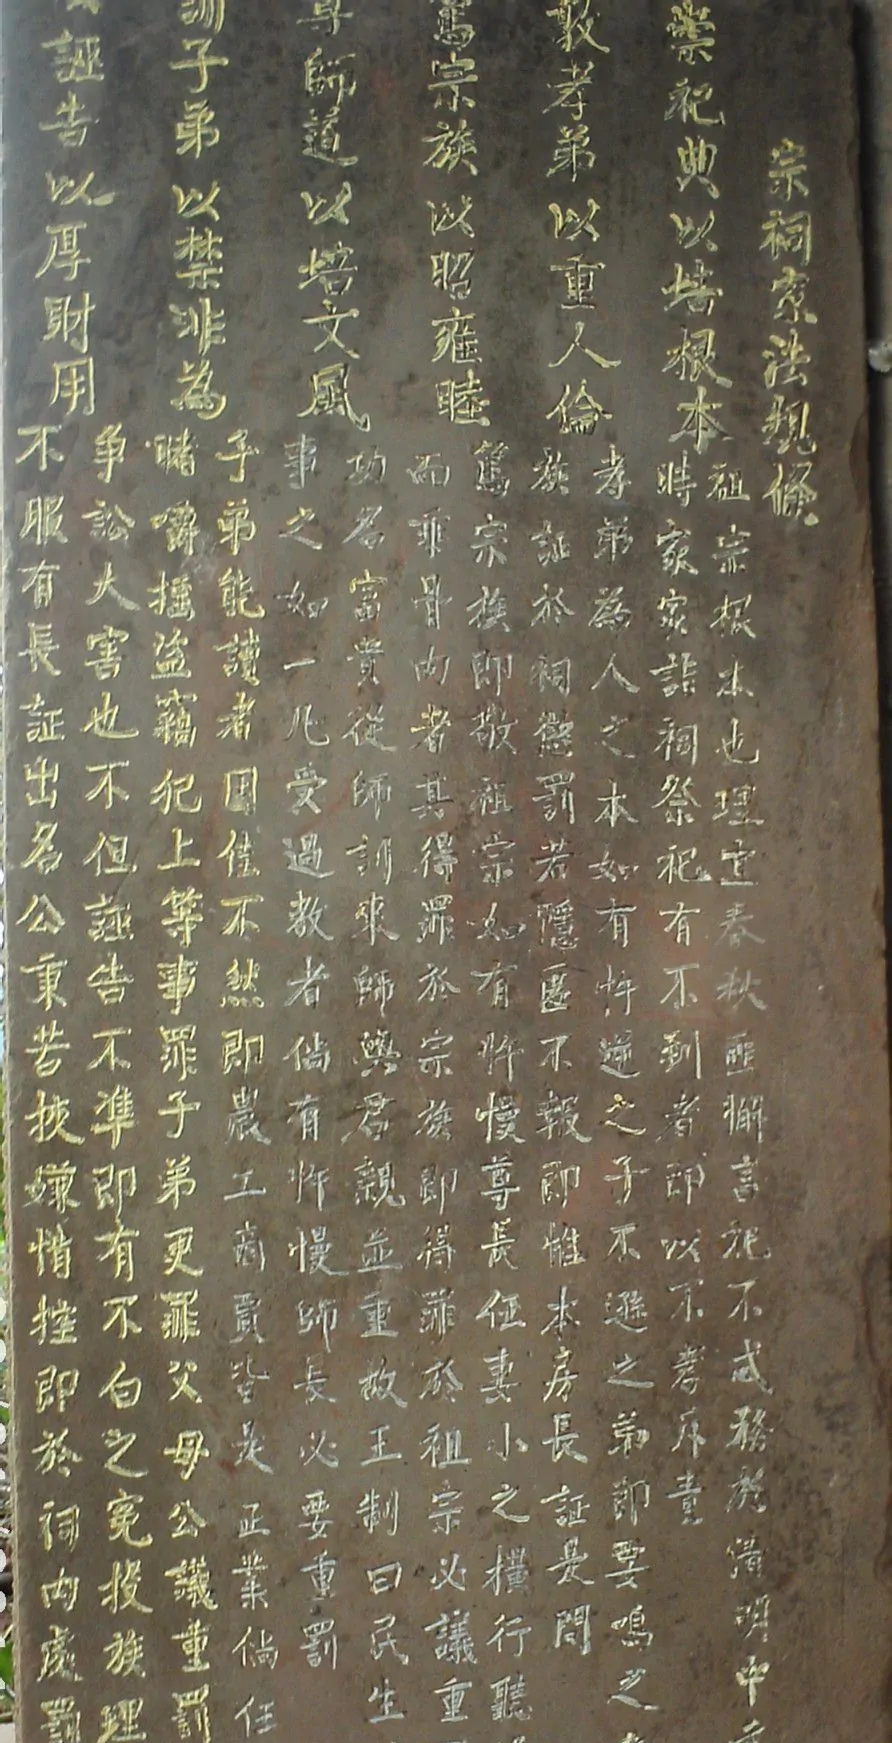 宗祠家法規條
崇祀典以培根本
祖宗根本也理宜春秋匪懈言祀不忒務於清明中
時家家詣祠祭祀有不到者即以不孝斥責
敦孝弟以重人倫
孝弟為人之本如有忤逆之子不遜之弟即要鳴之
族証於祠懲罰若隱匿不報即惟本房長証是問
篤宗族以昭雍睦
篤宗族即敬祖宗如有忤慢尊長任妻小之橫行聽
而乖骨肉者其得罪於宗族即得罪於祖宗必議重
尊師道以培文風
功名富貴從師訓來師與君親並重故王制曰民生
事之如一凡受過教者倘有忤慢師長必要重罰
訓子弟以禁非為
子弟能讀者固佳不然即農工商賈皆是正業倘任
賭嚼搖盜竊犯上等事罪子弟更罪父母公議重罰
誣告以厚財用
争訟大害也不但誣告不準即有不白之冤投族理
不服有長証出名公秉若挾嫌惜控即於祠內處罰